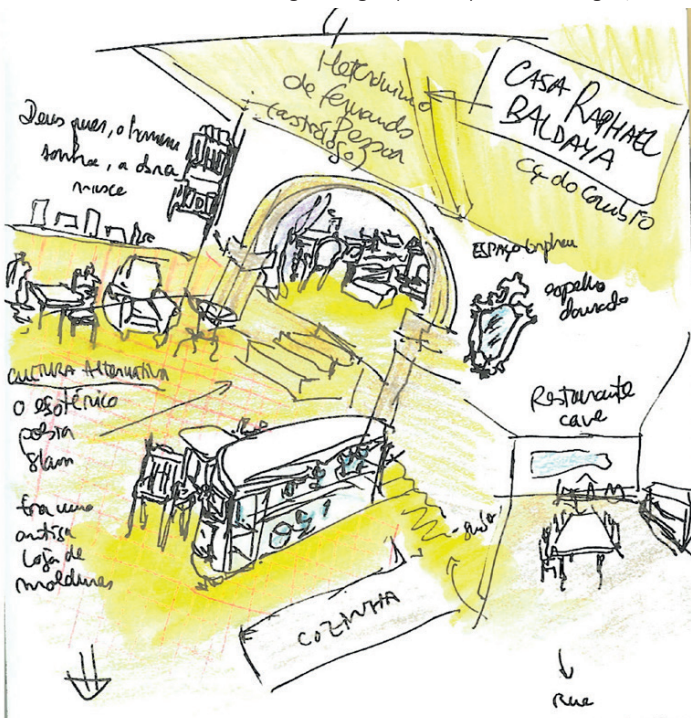 Heterónimo
de Fernando
Pessoa
(astrólogo)
CASA RAPHAEL
BALDAYA
Cç do Combro
Deus quer, o homem
sonha, a obra
nasce
ESPAÇO Orpheu
espelho
dourado
CULTURA Alternativa
o esotérico
poesia
Slam
Restaurante
cave
Era uma
antiga
loja de
molduras
COZINHA
Rua